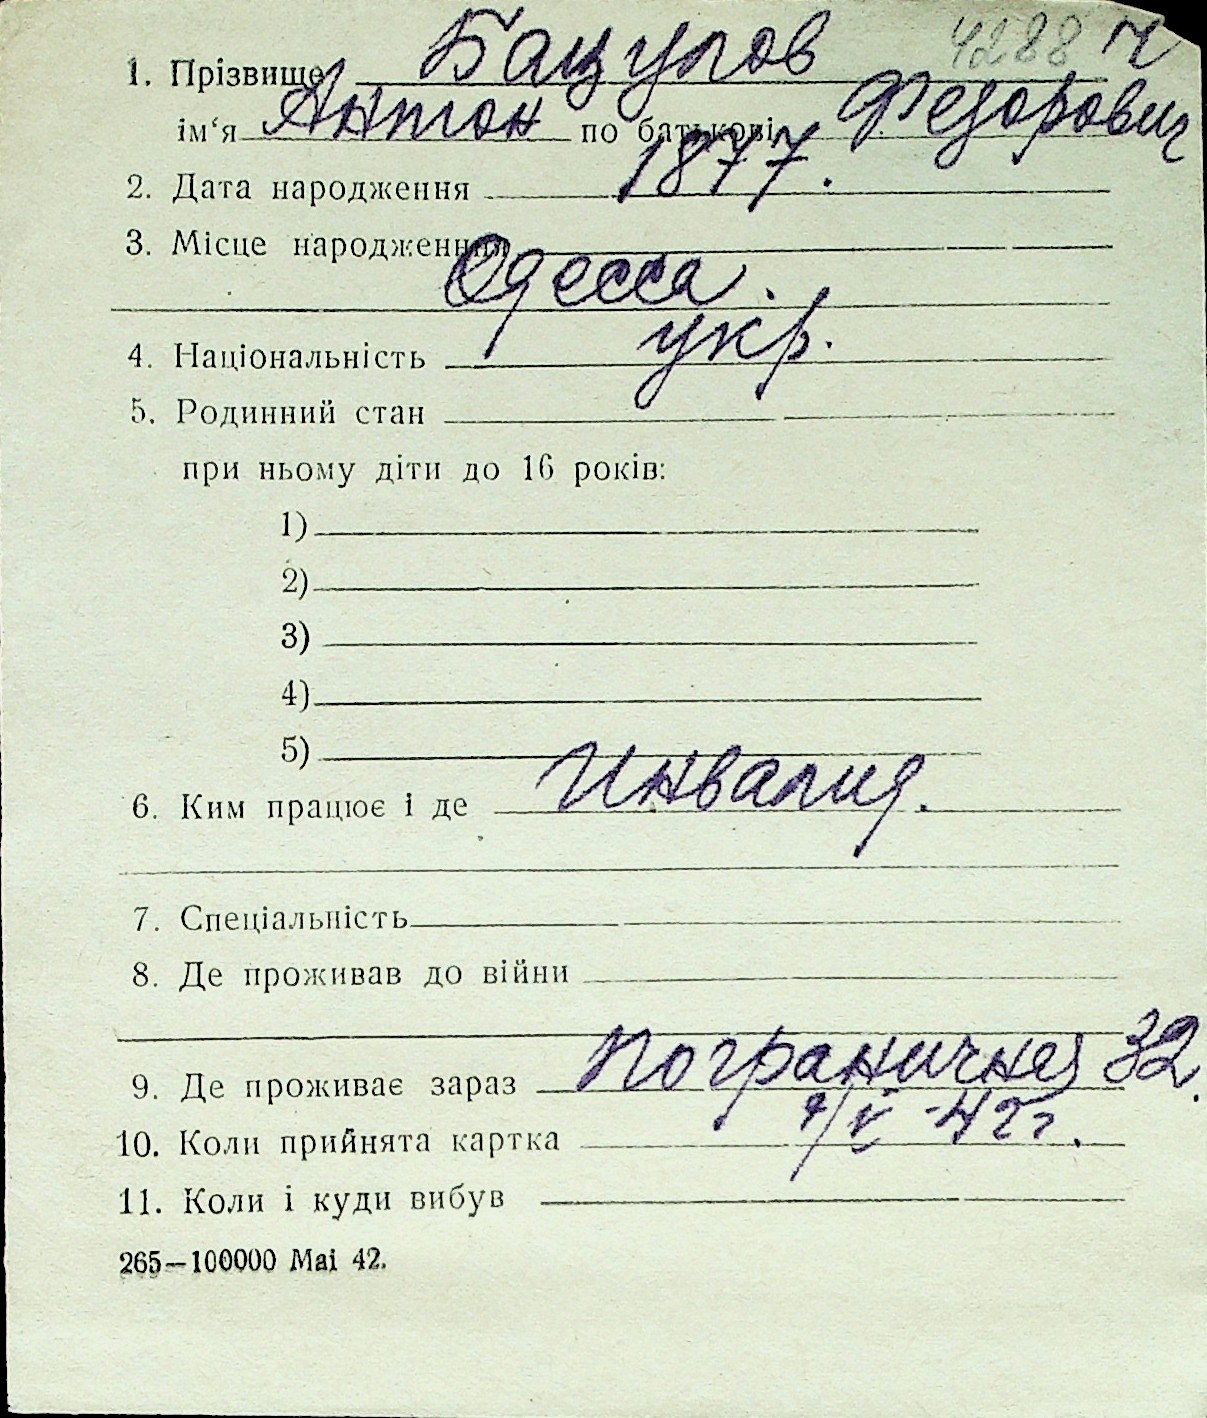 4288 ч
1. Прізвище Бацулов
ім‘я Антон по батькові Федорович
2. Дата народження 1877.
3. Місце народження
Одесса.
4. Національність укр.
5. Родинний стан
при ньому діти до 16 років:
1)
2)
3)
4)
5)
6. Ким працює і де Инвалид.
7. Спеціальність
8. Де проживав до війни
9. Де проживає зараз Пограничная 32.
10. Коли прийнята картка /V -42г.
11. Коли і куди вибув
265—100000 Mai 42.